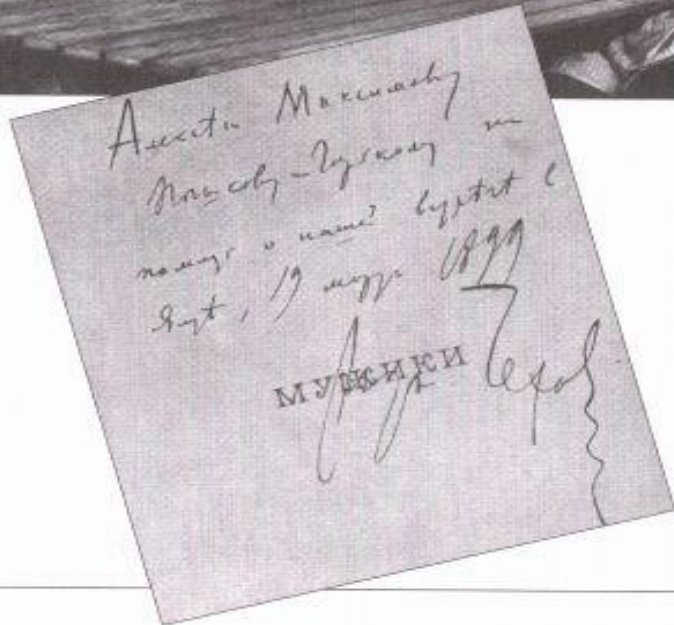 Алексѣю Максимовичу
Пѣшкову-Горькому на
память о нашей встрѣчѣ в
Ялтѣ, 19 марта 1899
Чехов
МУЖИКИ